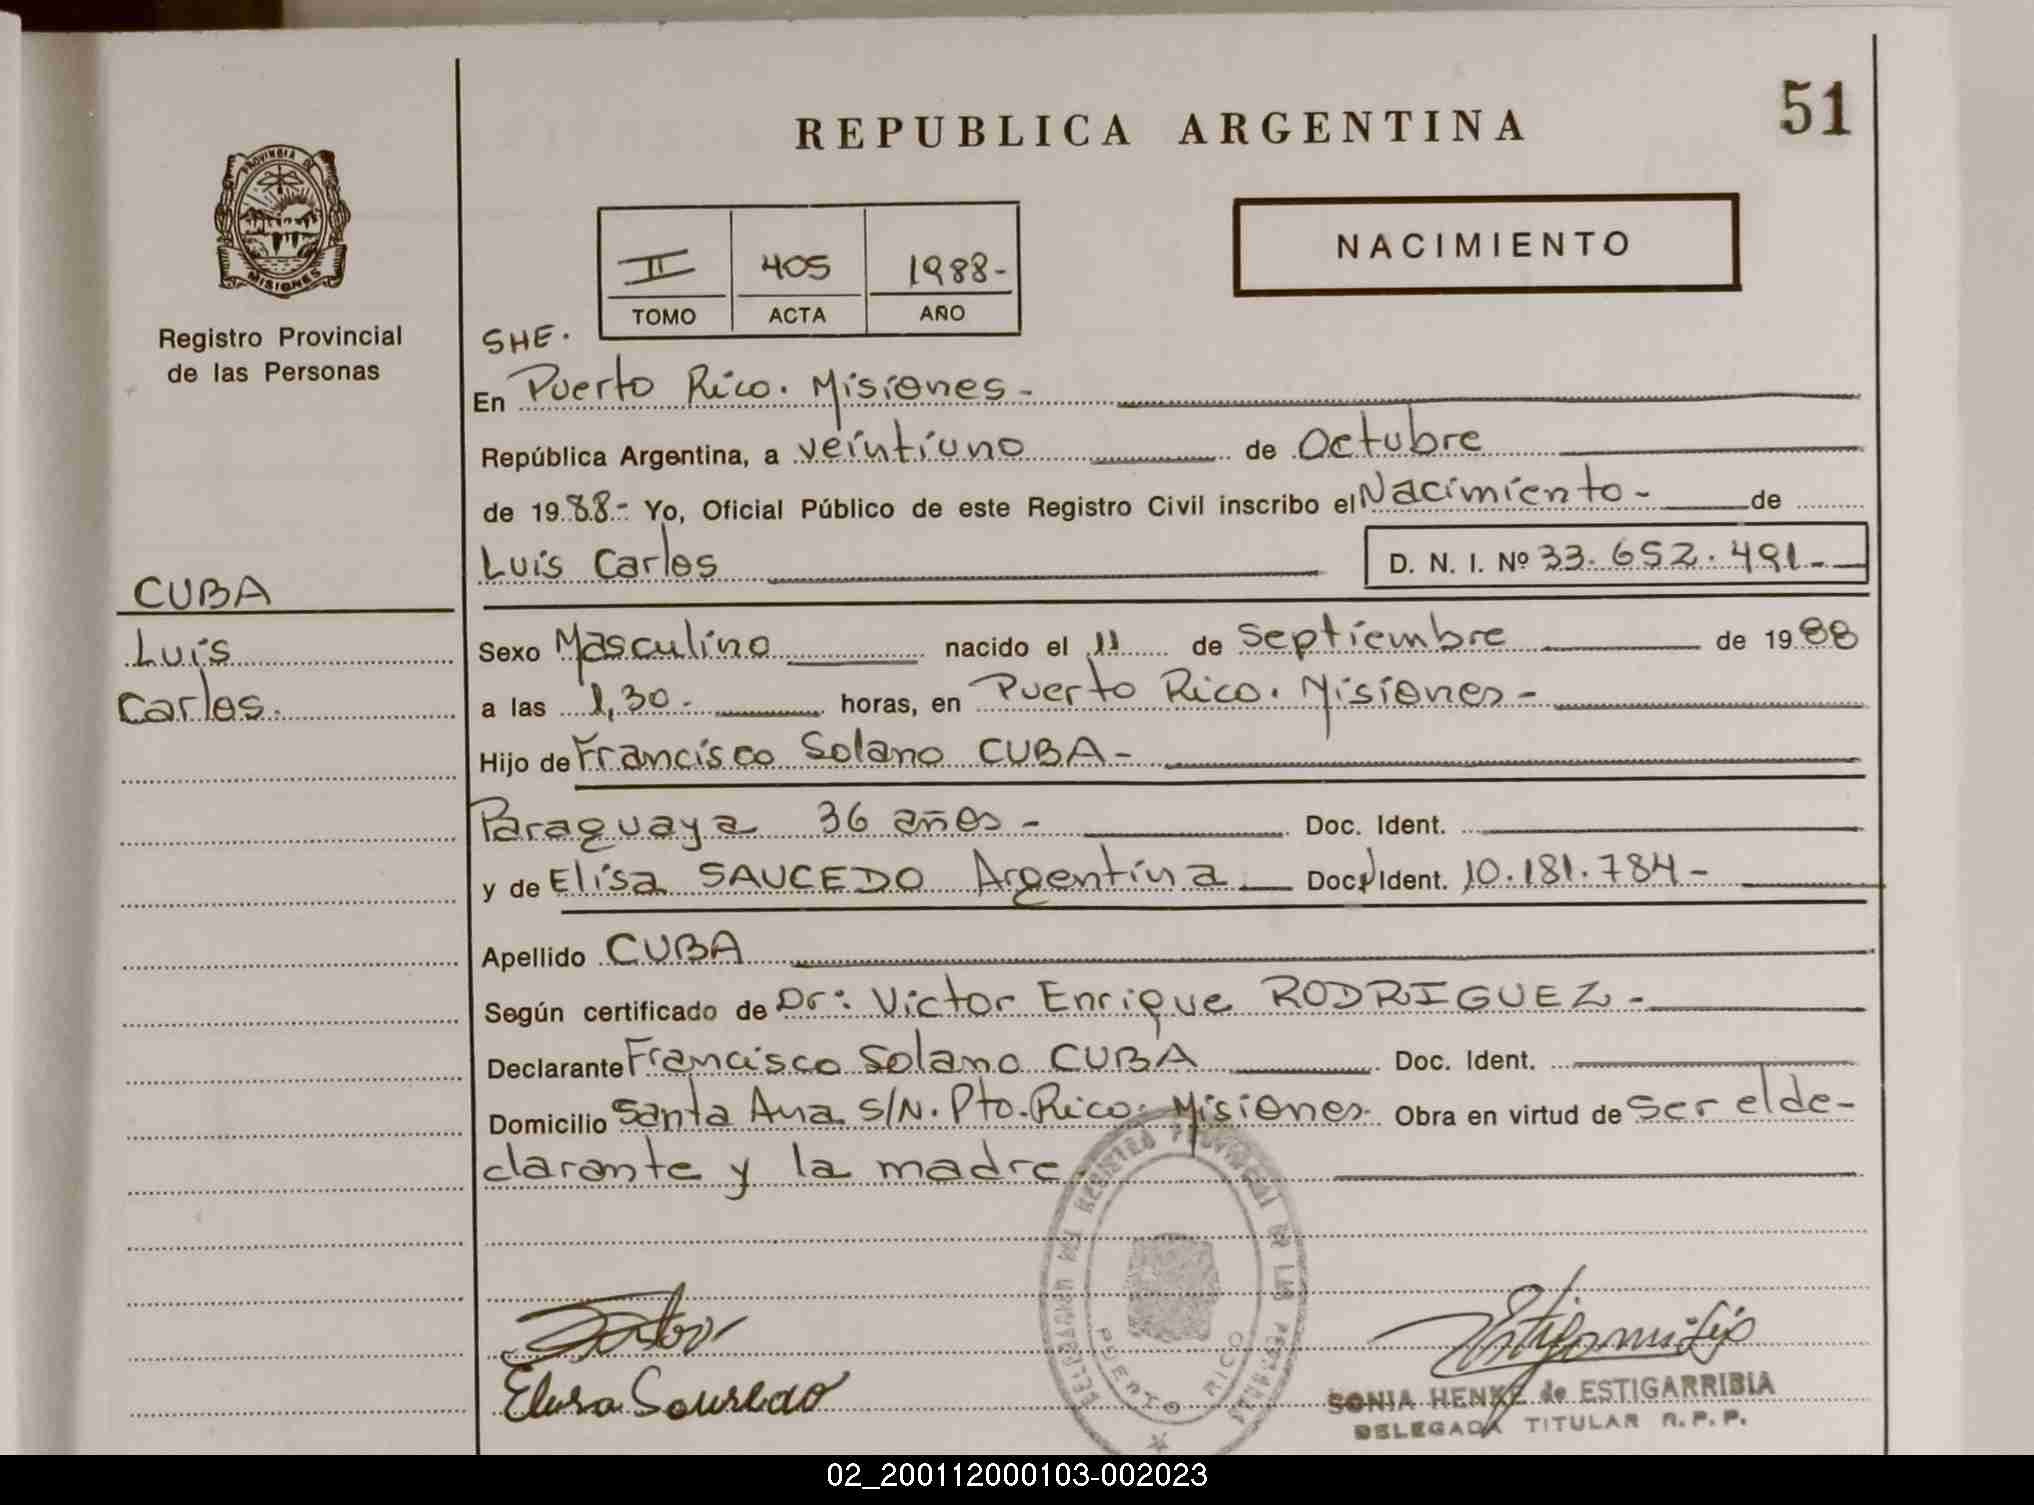 51
REPUBLICA ARGENTINA
PROVINCIA DE
MISIONES
Registro Provincial
de las Personas
II 405 1988-
TOMO ACTA AÑO
NACIMIENTO
SHE.
En Puerto Rico. Misiones-
República Argentina, a veintiuno de Octubre
de 1988.- Yo, Oficial Público de este Registro Civil inscribo el Nacimiento- de
Luis Carlos D. N. I. Nº 33.652.491.-
CUBA
Luis
Carlos.
Sexo Masculino nacido el 11 de septiembre de 1988
a las 1,30.- horas, en Puerto Rico. Misiones-
Hijo de Francisco Solano CUBA-
Paraguaya 36 años- Doc. Ident.
y de Elisa SAUCEDO Argentina Doc. Ident. 10.181.784-
Apellido CUBA
Según certificado de Dr: Victor Enrique RODRIGUEZ-
Declarante Francisco Solano CUBA Doc. Ident.
Domicilio Santa Ana S/N. Pto. Rico. Misiones. Obra en virtud de ser el de-
clarante y la madre.
DELEGACION DEL REGISTRO PROVINCIAL DE LAS PERSONAS
PUERTO RICO
SONIA HENKE de ESTIGARRIBIA
DELEGADA TITULAR R.P.P.
02_200112000103-002023